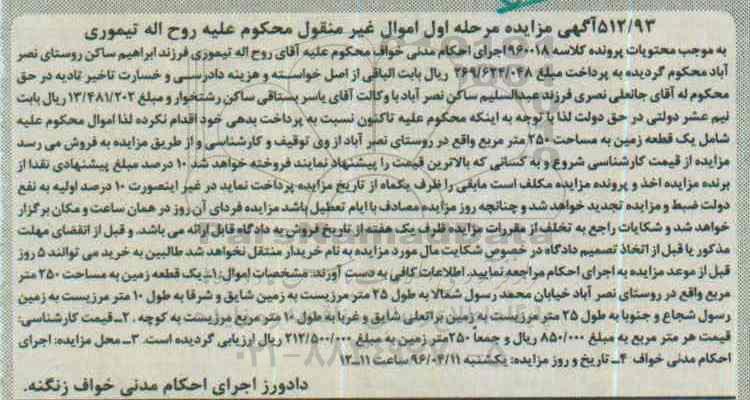 ۵۱۲/۹۳آگهی مزایده مرحله اول اموال غیر منقول محکوم علیه روح اله تیموری
به موجب محتویات پرونده کلاسه ۹۶۰۰۱۸اجرای احکام مدنی خواف محکوم علیه آقای روح اله تیموری فرزند ابراهیم ساکن روستای نصر
آباد محکوم گردیده به پرداخت مبلغ ۲۶۹/۶۲۴/۰۴۸ ریال بابت الباقی از اصل خواسته و هزینه دادرسی و خسارت تاخیر تادیه در حق
محکوم له آقای جانعلی نصری فرزند عبدالسلیم ساکن نصر آباد با وکالت آقای یاسر بستاقی ساکن رشتخوار و مبلغ ۱۳/۴۸۱/۲۰۲ ریال بابت
نیم عشر دولتی در حق دولت لذا با توجه به اینکه محکوم علیه تاکنون نسبت به پرداخت بدهی خود اقدام نکرده لذا اموال محکوم علیه
شامل یک قطعه زمین به مساحت ۲۵۰ متر مربع واقع در روستای نصر آباد از وی توقیف و کارشناسی و از طریق مزایده به فروش می رسد
مزایده از قیمت کارشناسی شروع و به کسانی که بالاترین قیمت را پیشنهاد نمایند فروخته خواهد شد ۱۰ درصد مبلغ پیشنهادی نقدا از
برنده مزایده اخذ و پرونده مزایده مکلف است مابقی را ظرف یکماه از تاریخ مزایده پرداخت نماید در غیر اینصورت ۱۰ درصد اولیه به نفع
دولت ضبط و مزایده تجدید خواهد شد و چنانچه روز مزایده مصادف با ایام تعطیل باشد مزایده فردای آن روز در همان ساعت و مکان برگزار
خواهد شد و شکایات راجع به تخلف از مقررات مزایده ظرف یک هفته از تاریخ فروش به دادگاه قابل ارائه می باشد. و قبل از انقضای مهلت
مذکور یا قبل از اتخاذ تصمیم دادگاه در خصوص شکایت مال مورد مزایده به نام خریدار منتقل نخواهد شد طالبین به خرید می توانند ۵ روز
قبل از موعد مزایده به اجرای احکام مراجعه نمایید. اطلاعات کافی به دست آورند. مشخصات اموال: ۱ـ یک قطعه زمین به مساحت ۲۵۰ متر
مربع واقع در روستای نصر آباد خیابان محمد رسول شمالا به طول ۲۵ متر مرزیست به زمین شایق و شرقا به طول ۱۰ متر مرزیست به زمین
رسول شجاع و جنوبا به طول ۲۵ متر مرزیست به زمین براتعلی شایق و غربا به طول ۱۰ متر مربع مرزیست به کوچه . ۲ـ قیمت کارشناسی:
قیمت هر متر مربع به مبلغ ۸۵۰/۰۰۰ ریال و جمعاً ۲۵۰متر زمین به مبلغ ۲۱۲/۵۰۰/۰۰۰ ریال ارزیابی گردیده است. ۳ـ محل مزایده: اجرای
احکام مدنی خواف ۴ـ تاریخ و روز مزایده: یکشنبه ۹۶/۰۴/۱۱ ساعت ۱۱ـ۱۲
دادورز اجرای احکام مدنی خواف زنگنه.